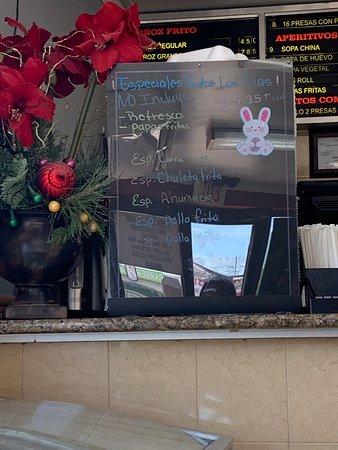 ROZ FRITO
EGULAR
ROZ GRAN
8. 16 PRESAS CON P
APERITIVOS
9. SOPA CHINA
DE HUEVO
VEGETAL
ROLL
TOS COM
LO 2 PRES
Especiales Todos Los Días!
NO Incluye
- Refresco
- Papas fritas
Esp. Carne frita
Esp. Chuleta frita
Esp. Ahumada
Esp. pollo frito
Esp. pollo